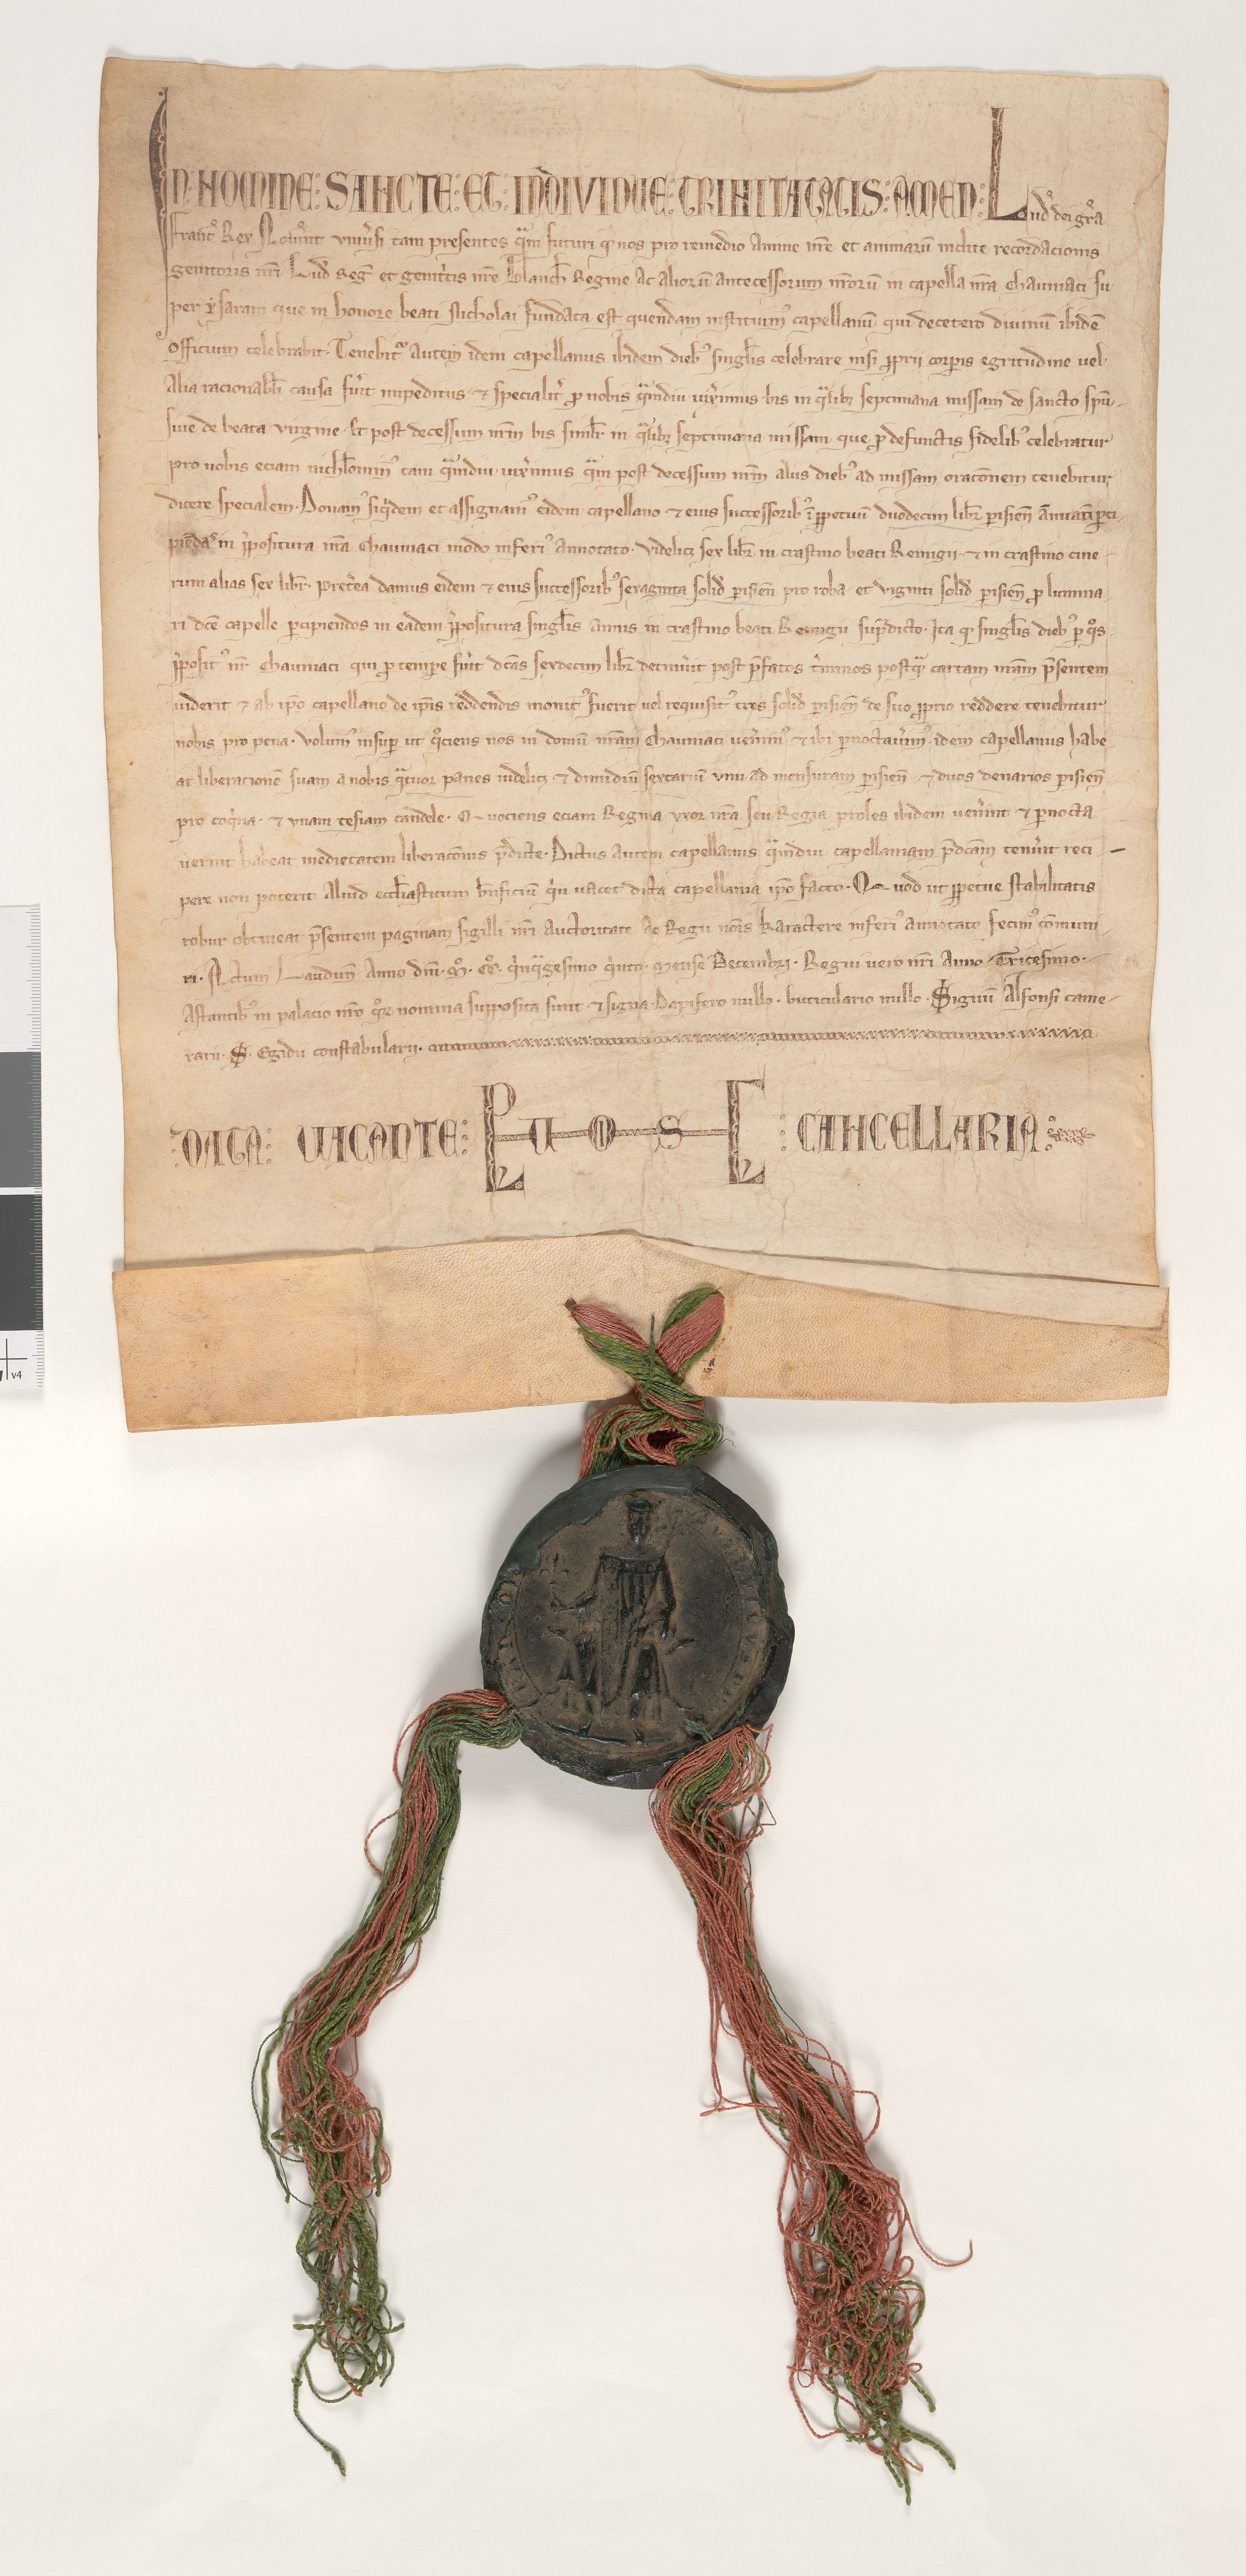 IN NOMINE: SANCTE: ET: INDIVIDUE: TRINITATIS: AMEN: Lud' dei gr̃a
Franc' Rex Nov̾int univ̾si tam presentes q̃m futuri q' nos pro remedio anime nr̃e et animarũ inclite recordacionis
genitoris nr̃i Lud' Reg' et genit'cis nr̃e Blanch' Regine ac aliorũ antecessorum nr̃orũ in capella nr̃a Chauniaci su
per ysaram que in honore beati Nicholai fundata est quendam instituim' capellanũ qui decetero divinũ ibidẽ
officium celebrabit. Tenebit' autem idem capellanus ibidem dieb' singl'is celebrare nisi p̱prii corp̱is egritudine vel
alia racionabl'i causa fu'it impeditus. et specialit' p̱ nobis q̃mdiu vix'imus bis in q̃libȝ septimana missam de sancto sp̃u
sive de beata virgine. Et post decessum nr̃m bis siml'r in q̃libȝ septimana missam que p̱ defunctis fidelib' celebratur
pro nobis eciam nichl'omin' tam q̃mdiu vix'imus q̃m post decessum nr̃m aliis dieb' ad missam orac̃onem tenebitur
dicere specialem. Donam' siq'dem et assignam' eidem capellano et eius successorib' ĩ p̱petuũ duodecim libr' parisien̄ annuatĩ p̱ci
piẽdas in p'positura nr̃a Chauniaci modo inferi' annotato. Videlicȝ sex libr' in crastino beati Remigii. et in crastino cine
rum alias sex libr'. Pret'ea damus eidem et eius successorib' sexaginta solid' parisien̄ pro roba et viginti solid' parisien̄ p̱ lumina
ri dc̃e capelle p̱cipiendos in eadem p'positura singl'is annis in crastino beati Remigii sup̃dicto. Ita q' singl'is dieb' p̱ q'os
p'posit' nr̃ Chauniaci qui p̱ tempe fu'it dc̃as sexdecim libr' detinu'it post p̃fatos t'minos postq̃ cartam nr̃am p̃sentem
viderit et ab ip̃o capellano de ip̃is reddendis monit' fuerit vel requisit' tres solid' parisien̄ de suo p̱prio reddere tenebitur
nobis pro pena. Volum' insup̱ ut q'ciens nos in domũ nr̃am Chauniaci ven'im' et ibi p̱noctav'im' idem capellanus habe
at liberacionẽ suam a nobis q̃tuor panes videlicȝ et dimidiũ sextariũ vini ad mensuram parisien̄ et duos denarios parisien̄
pro coq'na. et unam tesiam candele. Quociens eciam Regina uxor nr̃a seu Regia proles ibidem ven'int et p̱nocta
verint habeat medietatem liberac̃onis p̃dicte. Dictus autem capellanus q̃mdiu capellaniam p̃dc̃am tenu'it reci
pere non poterit aliud eccl'iasticum b'nficiũ q'n vacet dicta capellania ip̃o facto. Quod ut p̱petue stabilitatis
robur obtineat p̃sentem paginam sigilli nr̃i auctoritate ac Regii no'is karactere inferi' annotato fecim' cõmuni
ri. Actum Laudun̄ Anno dñi. M°. CC°. q'nq̃gesimo q'nto. Mense Decembri. Regni vero nr̃i Anno Tricesimo.
Astantib' in palacio nr̃o q'rȝ nomina supposita sunt et signa. Dapifero nullo. buticulario nullo. Signũ Alfonsi came
rarii. S. Egidii constabularii.
DATA: VACANTE: CANCELLARIA: